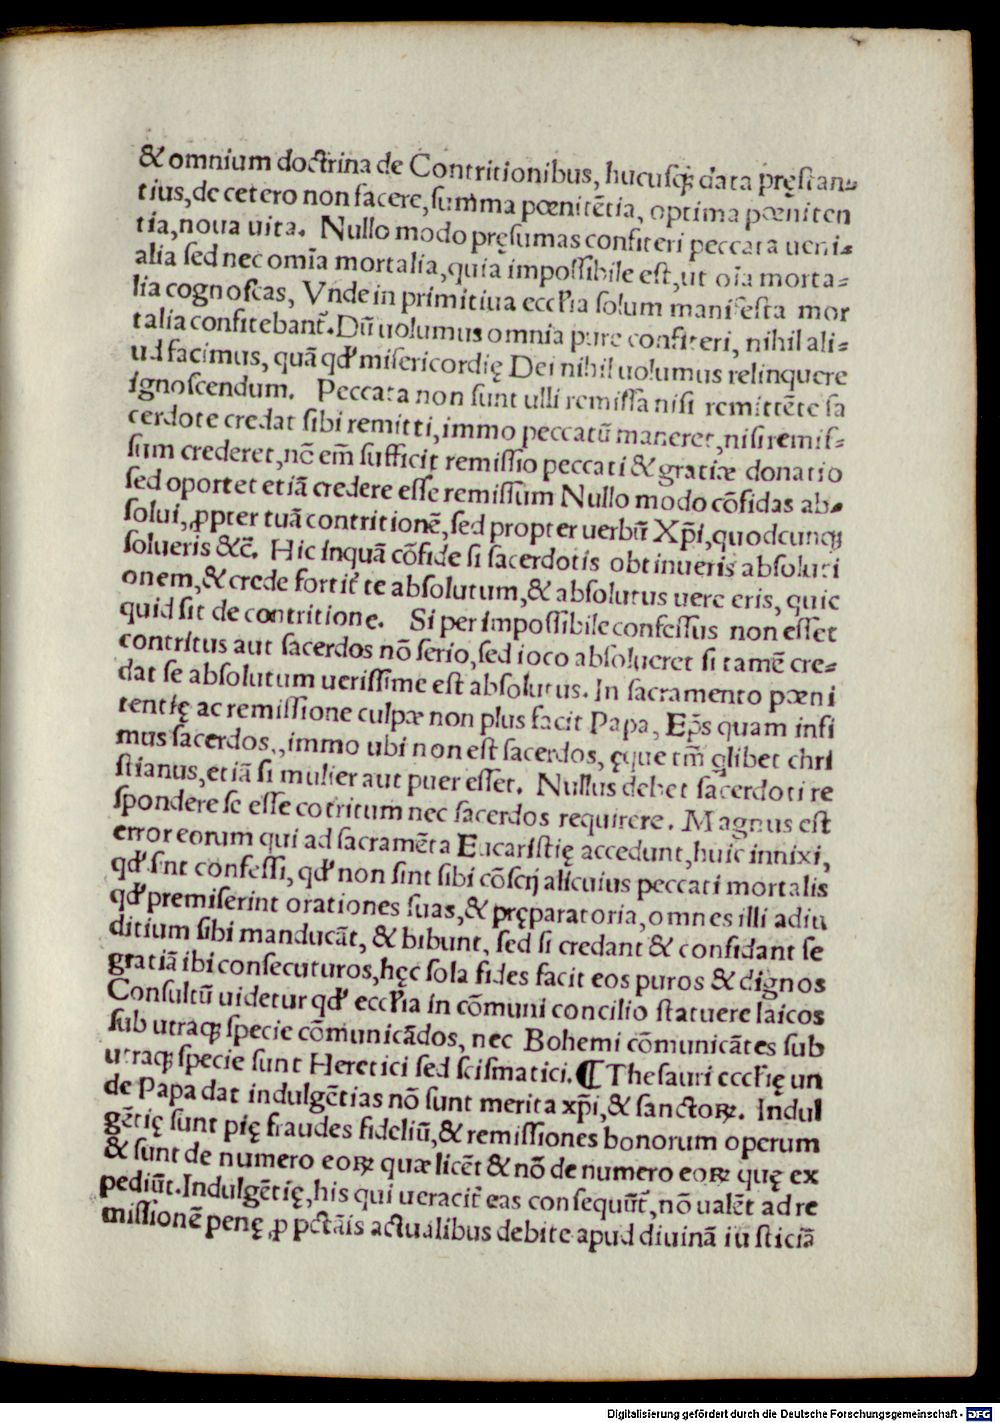 & omnium doctrina de Contritionibus, hucusqꝫ data pręstan=
tius, de cetero non facere, summa pœnitẽtia, optima pœniten
tia, noua uita. Nullo modo pręsumas confiteri peccata ueni=
alia sed nec omĩa mortalia, quia impossibile est, ut oĩa morta=
lia cognoscas, Vnde in primitiua eccl̃ia solum manifesta mor
talia confitebant̃. Dũ uolumus omnia pure confiteri, nihil ali=
ud facimus, quã qđ misericordię Dei nihil uolumus relinquere
ignoscendum. Peccata non sunt ulli remissa nisi remittẽte sa
cerdote credat sibi remitti, immo peccatũ maneret, nisi remis=
sum crederet, nõ em̃ sufficit remissio peccati & gratiæ donatio
sed oportet etiã credere esse remissum Nullo modo cõfidas ab=
solui, ꝓpter tuã contritionẽ, sed propter uerbũ Xp̃i, quodcunqꝫ
solueris &c̃. Hic inquã cõfide si sacerdotis obtinueris absoluti
onem, & crede fortit̃ te absolutum, & absolutus uere eris, quic
quid sit de contritione. Si per impossibile confessus non esset
contritus aut sacerdos nõ serio, sed ioco absolueret si tamẽ cre=
dat se absolutum uerissime est absolutus. In sacramento pœni
tentię ac remissione culpæ non plus facit Papa, Ep̃s quam infi
mus sacerdos, immo ubi non est sacerdos, ęque tm̃ q̃libet chri
stianus, etiã si mulier aut puer esset. Nullus debet sacerdoti re
spondere se esse cotritum nec sacerdos requirere. Magnus est
error eorum qui ad sacramẽta Eucaristię accedunt, huic innixi,
qđ sint confessi, qđ non sint sibi cõscij alicuius peccati mortalis
qđ premiserint orationes suas, & pręparatoria, omnes illi adiu
ditium sibi manducãt, & bibunt, sed si credant & confidant se
gratiã ibi consecuturos, hęc sola fides facit eos puros & dignos
Consultũ uidetur qđ eccl̃ia in cõmuni concilio statuere laicos
sub utraqꝫ specie cõmunicãdos, nec Bohemi cõmunicãtes sub
utraqꝫ specie sunt Heretici sed scismatici. ¶ Thesauri eccl̃ię un
de Papa dat indulgẽtias nõ sunt merita xp̃i, & sanctoꝝ. Indul
gẽtię sunt pię fraudes fideliũ, & remissiones bonorum operum
& sunt de numero eoꝝ quæ licẽt & nõ de numero eoꝝ quę ex
pediũt. Indulgẽtię, his qui ueracit̃ eas consequũt̃, nõ ualẽt ad re
missionẽ penę, ꝓ pctãis actualibus debite apud diuinã iusticiã
Digitalisierung gefördert durch die Deutsche Forschungsgemeinschaft - DFG